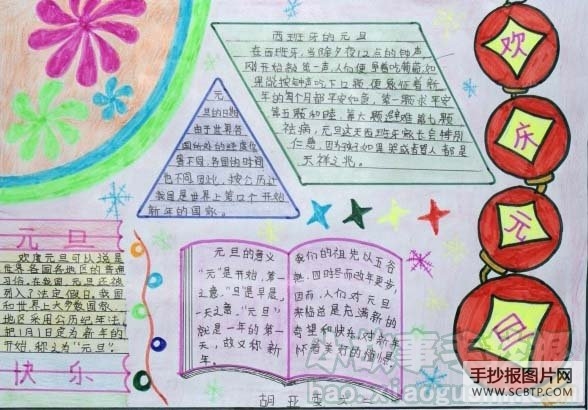 西班牙的元旦
在西班牙,当除夕夜12点的钟声
刚开始敲第一声,人们便争着吃葡萄,如
果能按钟声吃下12颗,便象征着新
年的每个月都平安如意,第一颗求平安
第五颗和睦,第六颗避难,第七颗
祛病,元旦这天西班牙家长会特别
仁慈,因为孩子如果哭或者詈人都是
不祥之兆。
元
旦的日期
由于世界各
国所处的经度位
置不同,各国的时间
也不同因此,按公历计
我国是世界上第12个开始
新年的国家。
欢
庆
元
旦
元旦
欢度元旦可以说是
世界各国各地区的普通
习俗,在我国,元旦还被
列入了法定假日,我国
和世界上大多数国家
地区采用公历纪年法,
把1月1日定为新年的
开始,称之为"元旦"。
快乐
元旦的意义
"元"是开始,第一
之意,"旦"是早晨,
一天之意,"元旦"
就是一年的第一
天,故又称新
年。
我们的祖先以五谷
熟,四时冬而改年更岁,
因而,人们对元旦
来临总是充满新的
希望和快乐,对新年
怀着美好的憧憬
手抄报图片网
WWW.SCBTP.COM